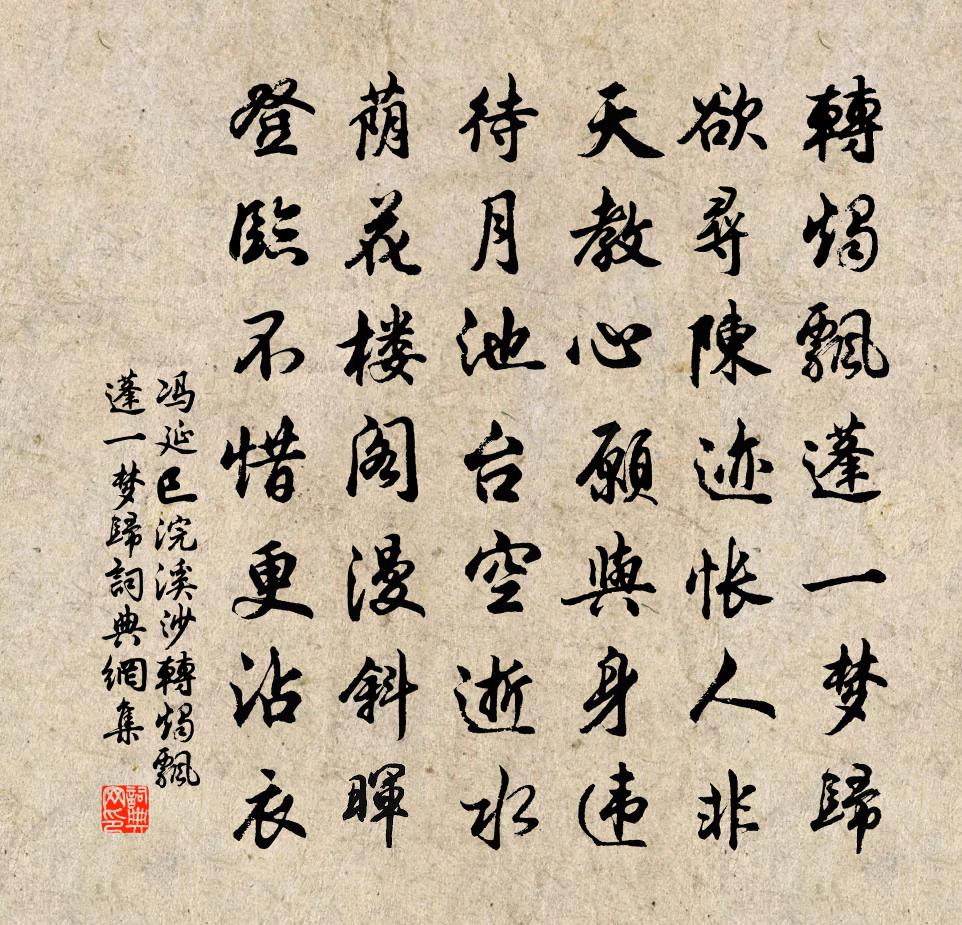 轉燭飄蓬一梦歸
欲尋陳迹悵人非
天教心願與身违
待月池台空逝水
荫花楼阁漫斜暉
登臨不惜更沾衣
冯延巳浣溪沙轉燭飄
蓬一梦歸詞典網集
詞典网印